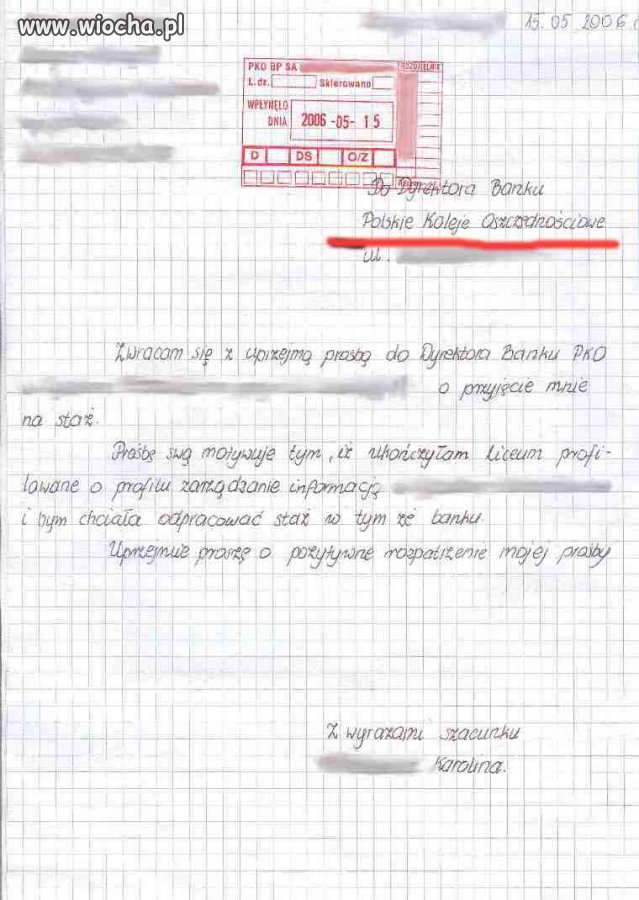 www.wiocha.pl
15.05 2006 r
PKO BP SA ROZDZIELNIK
L.dz. Skierowano
WPŁYNĘŁO
DNIA 2006 -05- 15
D DS O/Z
Do Dyrektora Banku
Polskie Koleje Oszczędnościowe
ul.
Zwracam się z uprzejmą prosbą do Dyrektora Banku PKO
o przyjęcie mnie
na staż.
Prośbę swą motywuje tym, iż ukończyłam liceum profi-
lowane o profilu zarządzanie informacją
i bym chciała odpracować staż w tym że banku.
Uprzejmie proszę o pozytywne rozpatrzenie mojej prośby
Z wyrazami szacunku
Karolina.